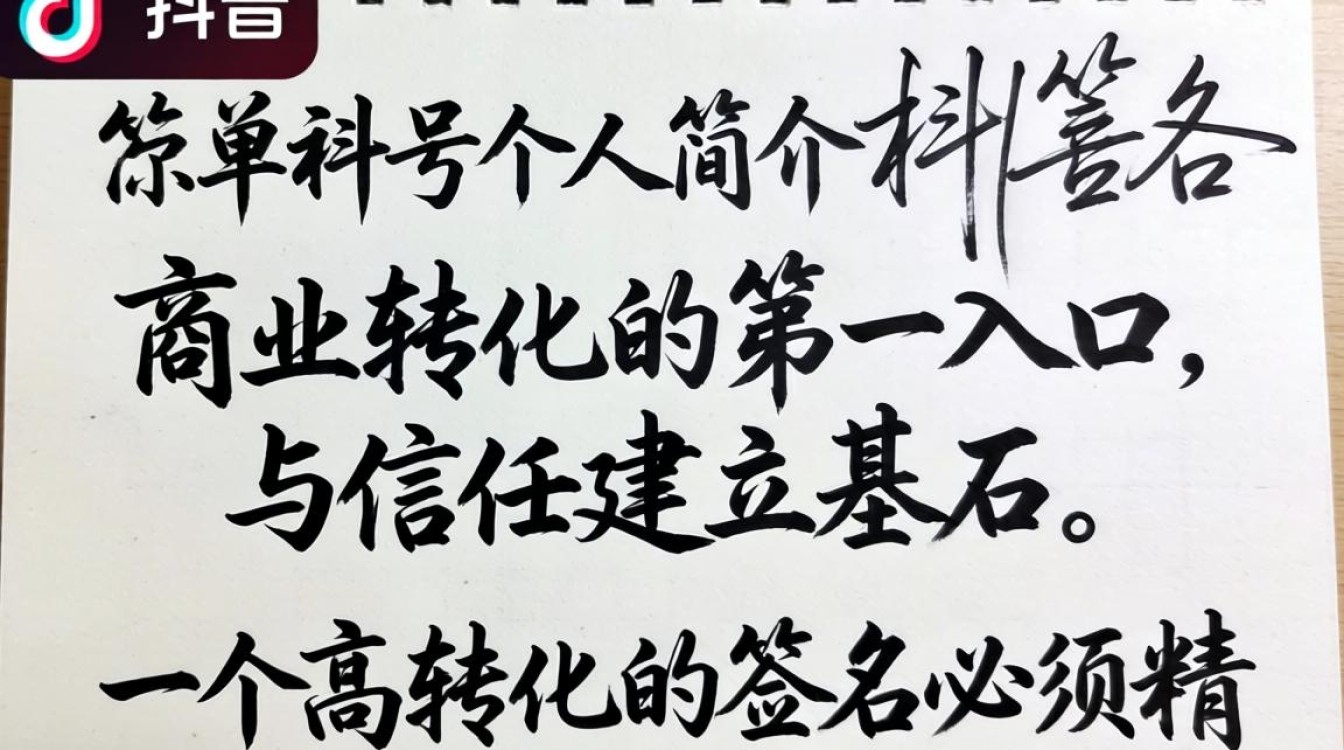 抖音
单科号个人简介科各
商业转化的第一入口，
与信任建立基石。
一个高转化的签名必须精